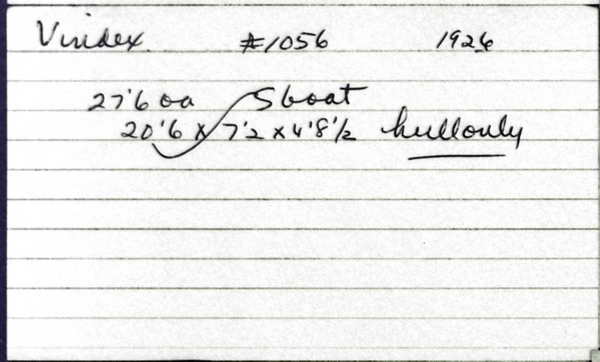 Viridex #1056 1926
27'6 oa S boat
20'6 x 7'2 x 4'8 1/2 hull only